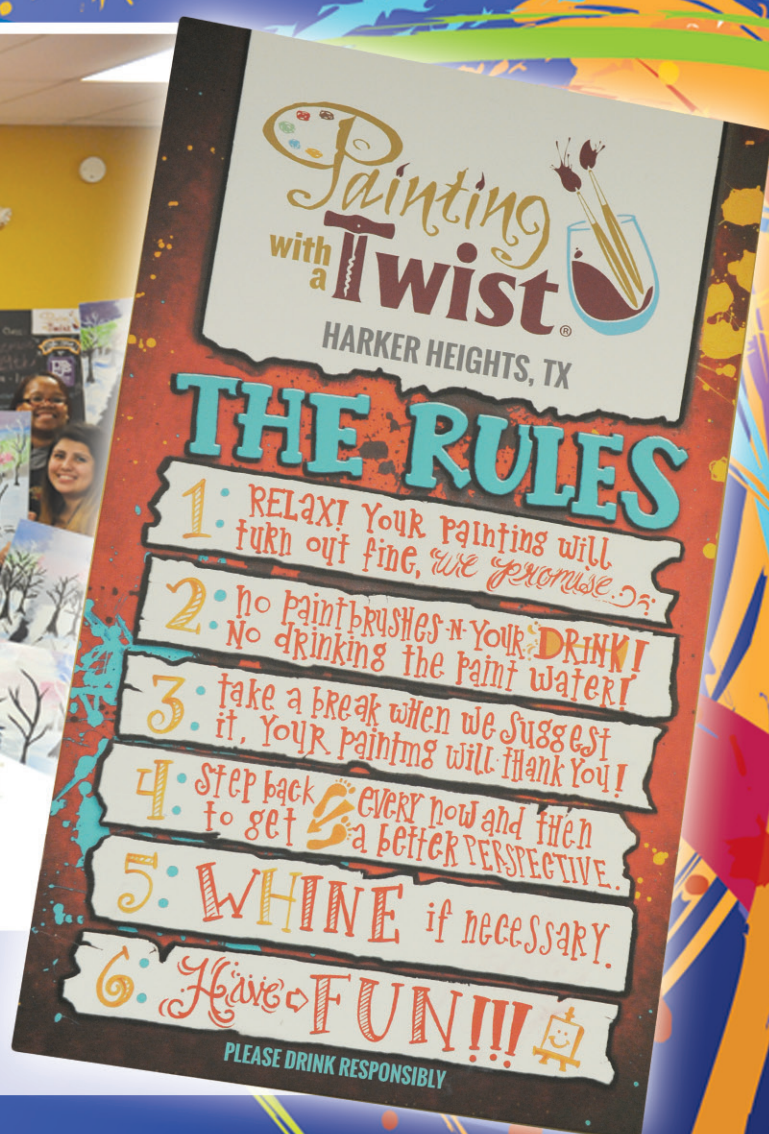 Painting
with a Twist®
HARKER HEIGHTS, TX
THE RULES
1: RELAX! YOUR PAINTING WILL
TURN OUT FINE, WE PROMISE.
2: NO PAINTBRUSHES -N- YOUR DRINK!
NO DRINKING THE PAINT WATER!
3: TAKE A BREAK WHEN WE SUGGEST
IT, YOUR PAINTING WILL THANK YOU!
4: STEP BACK EVERY NOW AND THEN
TO GET A BETTER PERSPECTIVE.
5: WHINE IF NECESSARY.
6: Have FUN!!!
PLEASE DRINK RESPONSIBLY
Twist